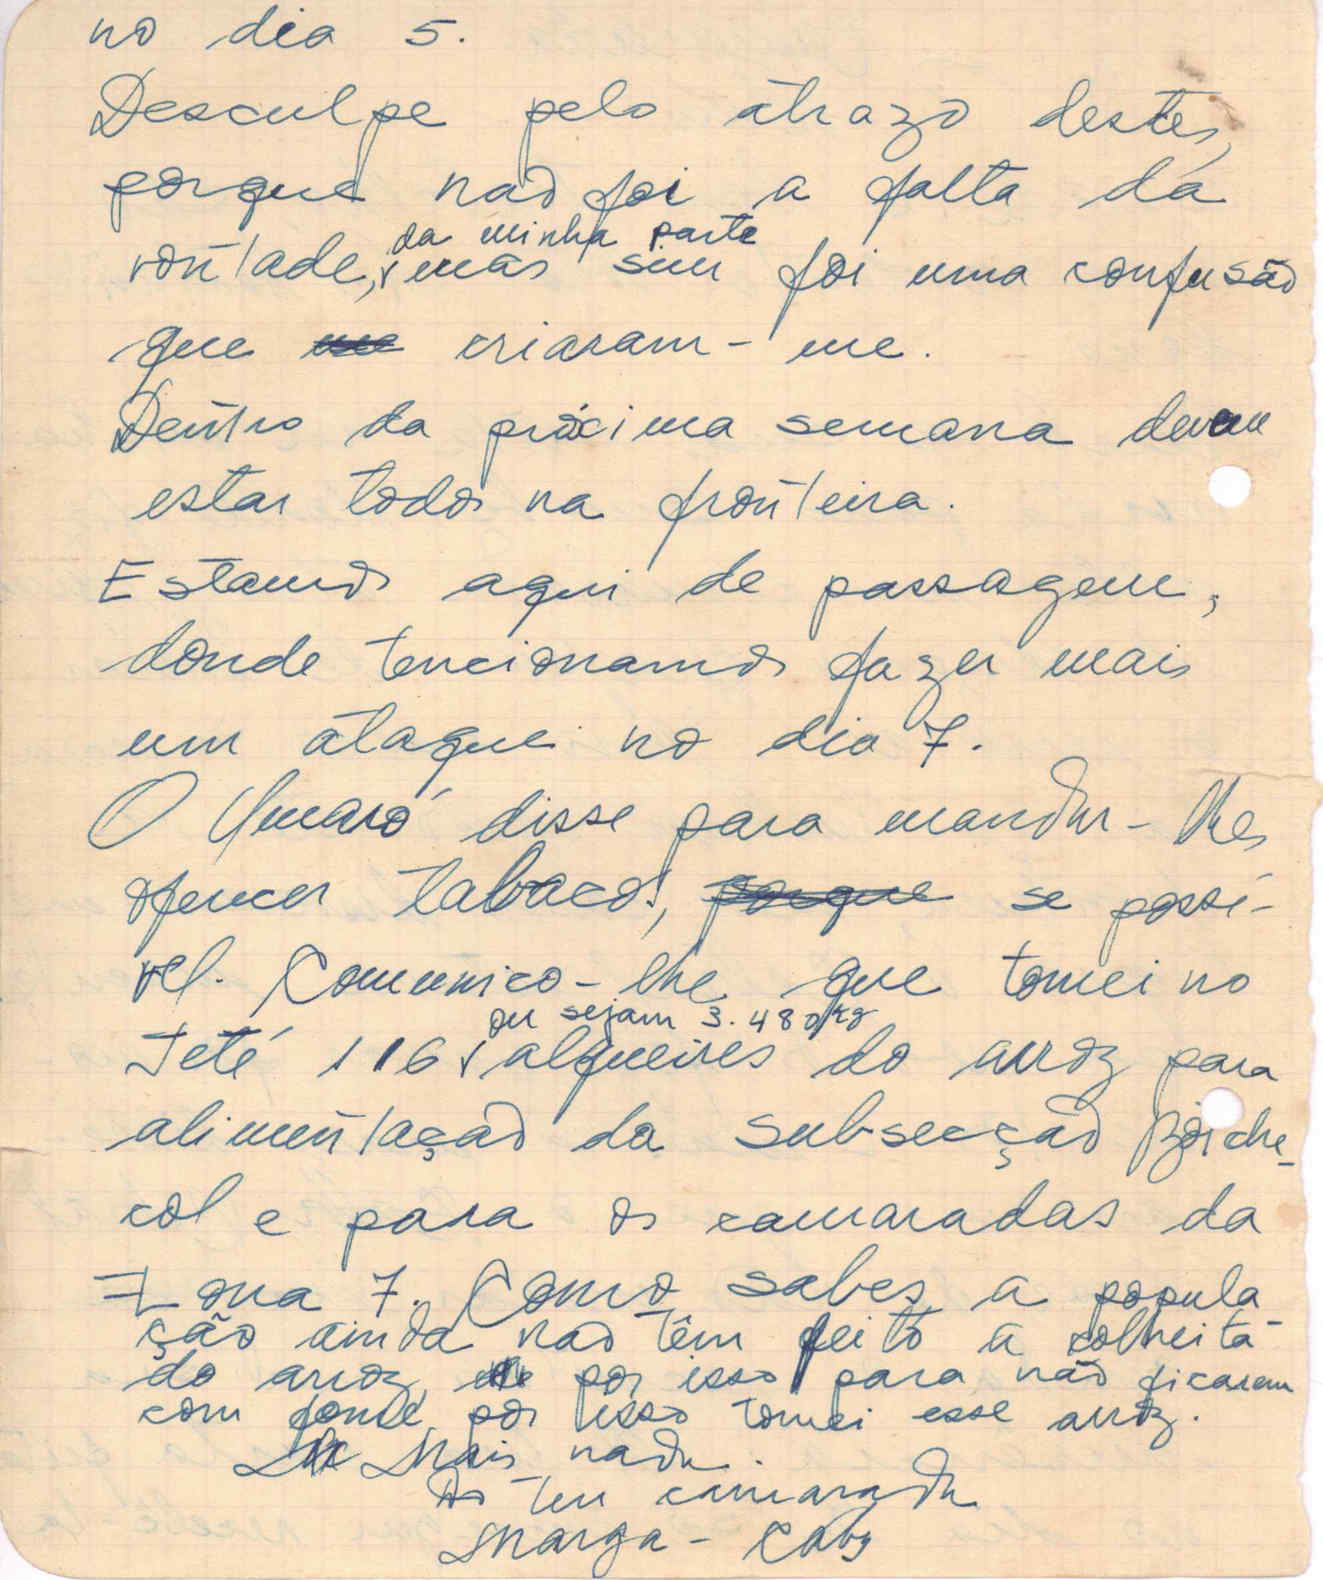 no dia 5.
Desculpe pelo atrazo destes,
porque não foi a falta da
da minha parte
vontade, mas sim foi uma confusão
que criaram-me.
Dentro da próxima semana devem
estar todos na fronteira.
Estamos aqui de passagem,
donde tencionamos fazer mais
um ataque no dia 7.
O Umaró disse para mandar-lhes
oferecer tabacos, porque se possí-
vel. Comunico-lhe que tomei no
ou sejam 3.480 kg
Teté 116 alqueires do arroz para
alimentação da subsecção
col e para os camaradas da
Zona 7. Como sabes a popula
ção ainda não têm feito a colheita
do arroz, por isso para não ficarem
com fome, por isso tomei esse arroz.
Mais nada.
Do teu camarada